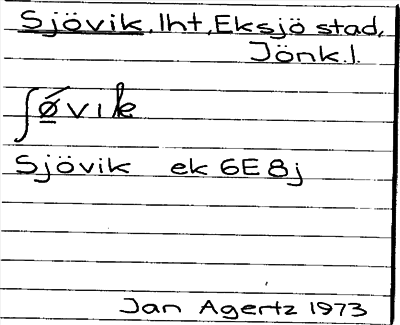 Sjövik, lht, Eksjö stad,
Jönk.l.
ʃǿ̠vik
Sjövik ek 6E 8j
Jan Agertz 1973